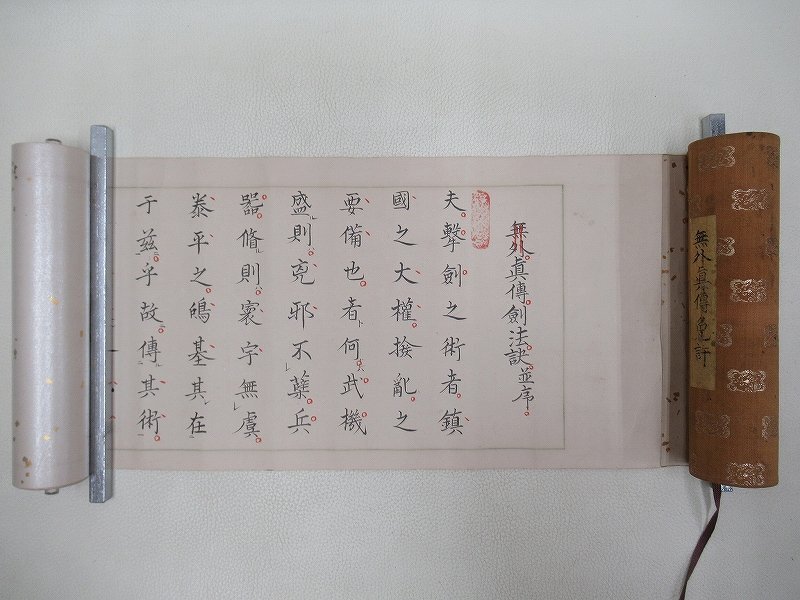 無外眞傳免許
無外眞傳劍法訣並序
夫擊劍之術者鎮
國之大權撥亂之
要備也者何武機
盛則兇邪不蘖兵
器脩則寰宇無虞
泰平之鴻基其在
于茲乎故傳其術